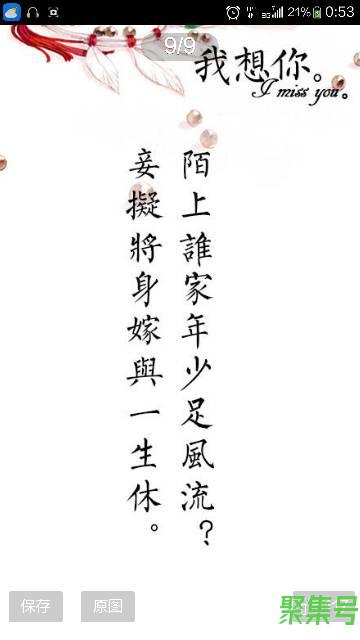 21% 0:53
9/9
我想你。
I miss you。
陌上誰家年少足風流？
妾擬將身嫁與一生休。
保存 原图
聚集号